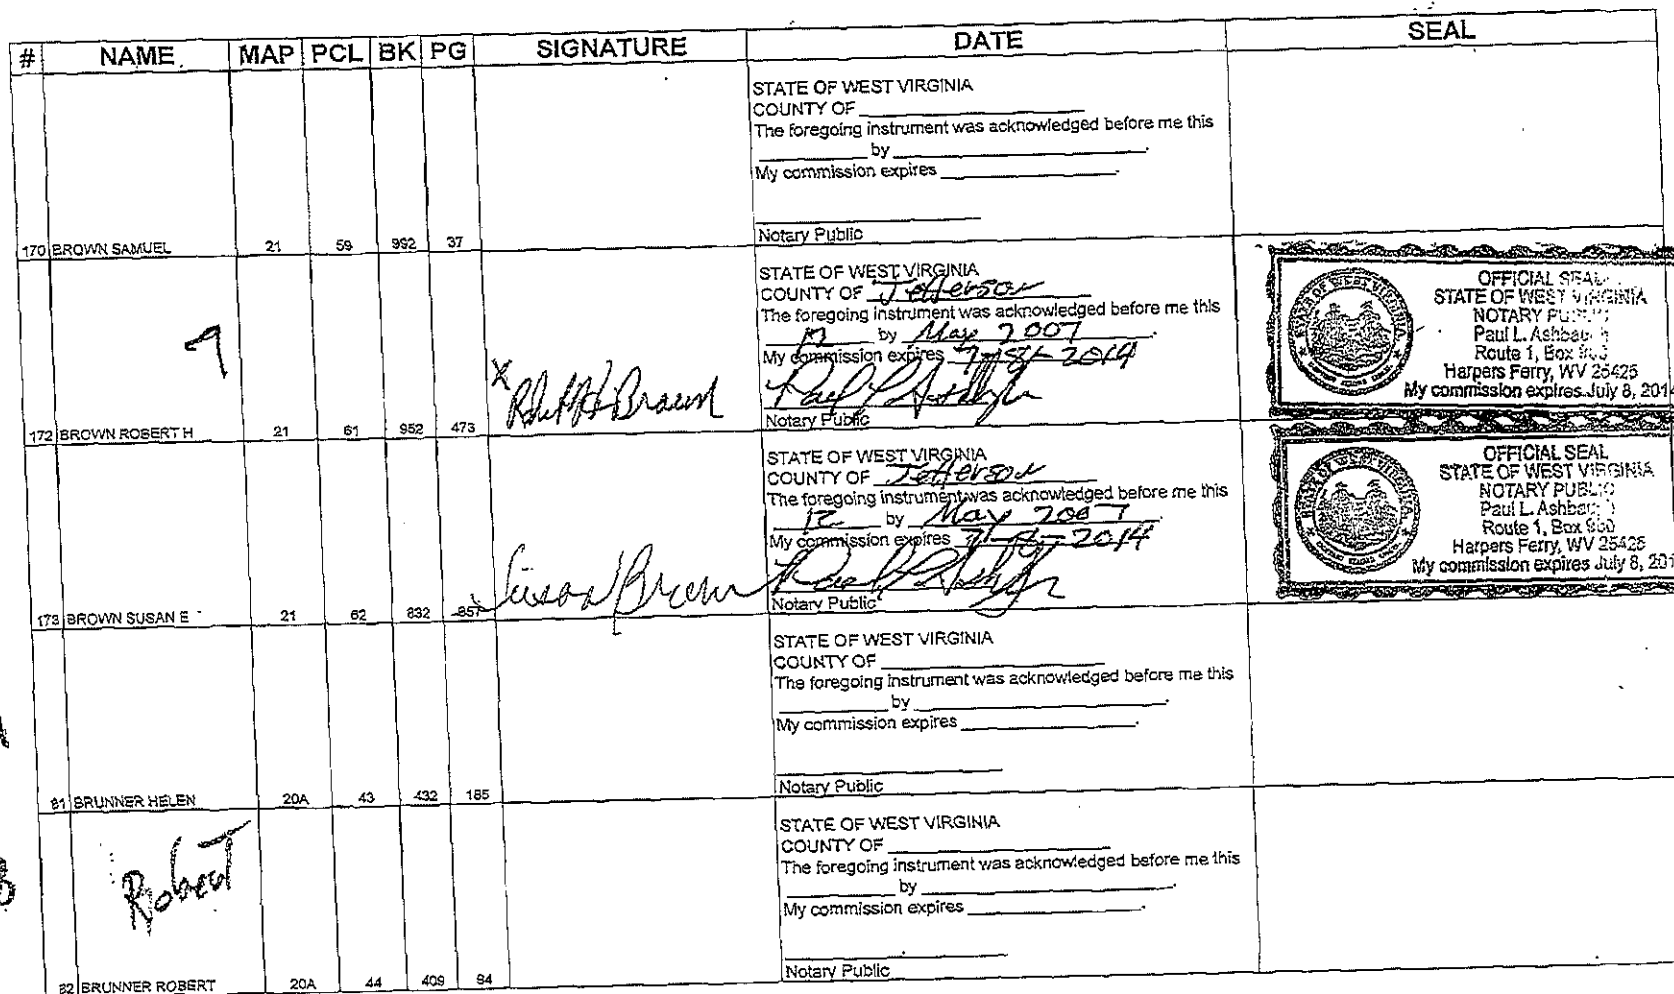 # NAME MAP PCL BK PG SIGNATURE DATE SEAL
STATE OF WEST VIRGINIA
COUNTY OF
The foregoing instrument was acknowledged before me this
by
My commission expires
Notary Public
170 BROWN SAMUEL 21 59 992 37
STATE OF WEST VIRGINIA
COUNTY OF Jefferson
The foregoing instrument was acknowledged before me this
12 by May 2007
My commission expires 7-8-2014
X Robert H Brown
Notary Public
OFFICIAL SEAL
STATE OF WEST VIRGINIA
NOTARY PUBLIC
Paul L. Ashbaugh
Route 1, Box
Harpers Ferry, WV 25425
My commission expires July 8, 2014
172 BROWN ROBERT H 21 61 952 473
STATE OF WEST VIRGINIA
COUNTY OF Jefferson
The foregoing instrument was acknowledged before me this
12 by May 2007
My commission expires 7-8-2014
Susan Brown
Notary Public
OFFICIAL SEAL
STATE OF WEST VIRGINIA
NOTARY PUBLIC
Paul L. Ashbaugh
Route 1, Box
Harpers Ferry, WV 25425
My commission expires July 8, 201
173 BROWN SUSAN E 21 62 832 857
STATE OF WEST VIRGINIA
COUNTY OF
The foregoing instrument was acknowledged before me this
by
My commission expires
Notary Public
81 BRUNNER HELEN 20A 43 432 185
Robert
STATE OF WEST VIRGINIA
COUNTY OF
The foregoing instrument was acknowledged before me this
by
My commission expires
Notary Public
82 BRUNNER ROBERT 20A 44 409 84